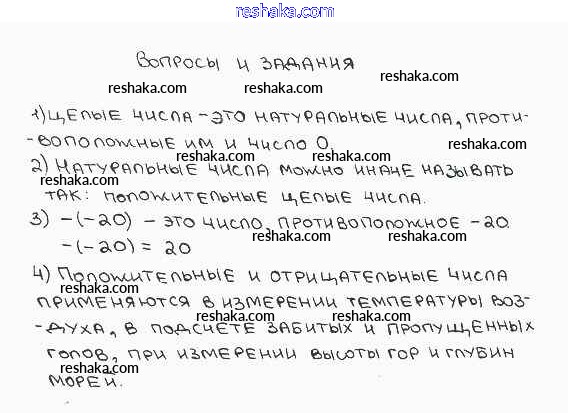 reshaka.com
ВОПРОСЫ И ЗАДАНИЯ
reshaka.com
reshaka.com
reshaka.com
1) ЦЕЛЫЕ ЧИСЛА - ЭТО НАТУРАЛЬНЫЕ ЧИСЛА, ПРОТИ-
reshaka.com
reshaka.com
-ВОПОЛОЖНЫЕ ИМ И ЧИСЛО 0.
reshaka.com
reshaka.com
2) НАТУРАЛЬНЫЕ ЧИСЛА МОЖНО ИНАЧЕ НАЗЫВАТЬ
reshaka.com
ТАК: ПОЛОЖИТЕЛЬНЫЕ ЦЕЛЫЕ ЧИСЛА.
reshaka.com
3) -(-20) - ЭТО ЧИСЛО, ПРОТИВОПОЛОЖНОЕ -20.
reshaka.com
reshaka.com
-(-20) = 20
4) ПОЛОЖИТЕЛЬНЫЕ И ОТРИЦАТЕЛЬНЫЕ ЧИСЛА
reshaka.com
ПРИМЕНЯЮТСЯ В ИЗМЕРЕНИИ ТЕМПЕРАТУРЫ ВОЗ-
reshaka.com
reshaka.com
-ДУХА, В ПОДСЧЕТЕ ЗАБИТЫХ И ПРОПУЩЕННЫХ
reshaka.com
ГОЛОВ, ПРИ ИЗМЕРЕНИИ ВЫСОТЫ ГОР И ГЛУБИН
reshaka.com
МОРЕЙ.